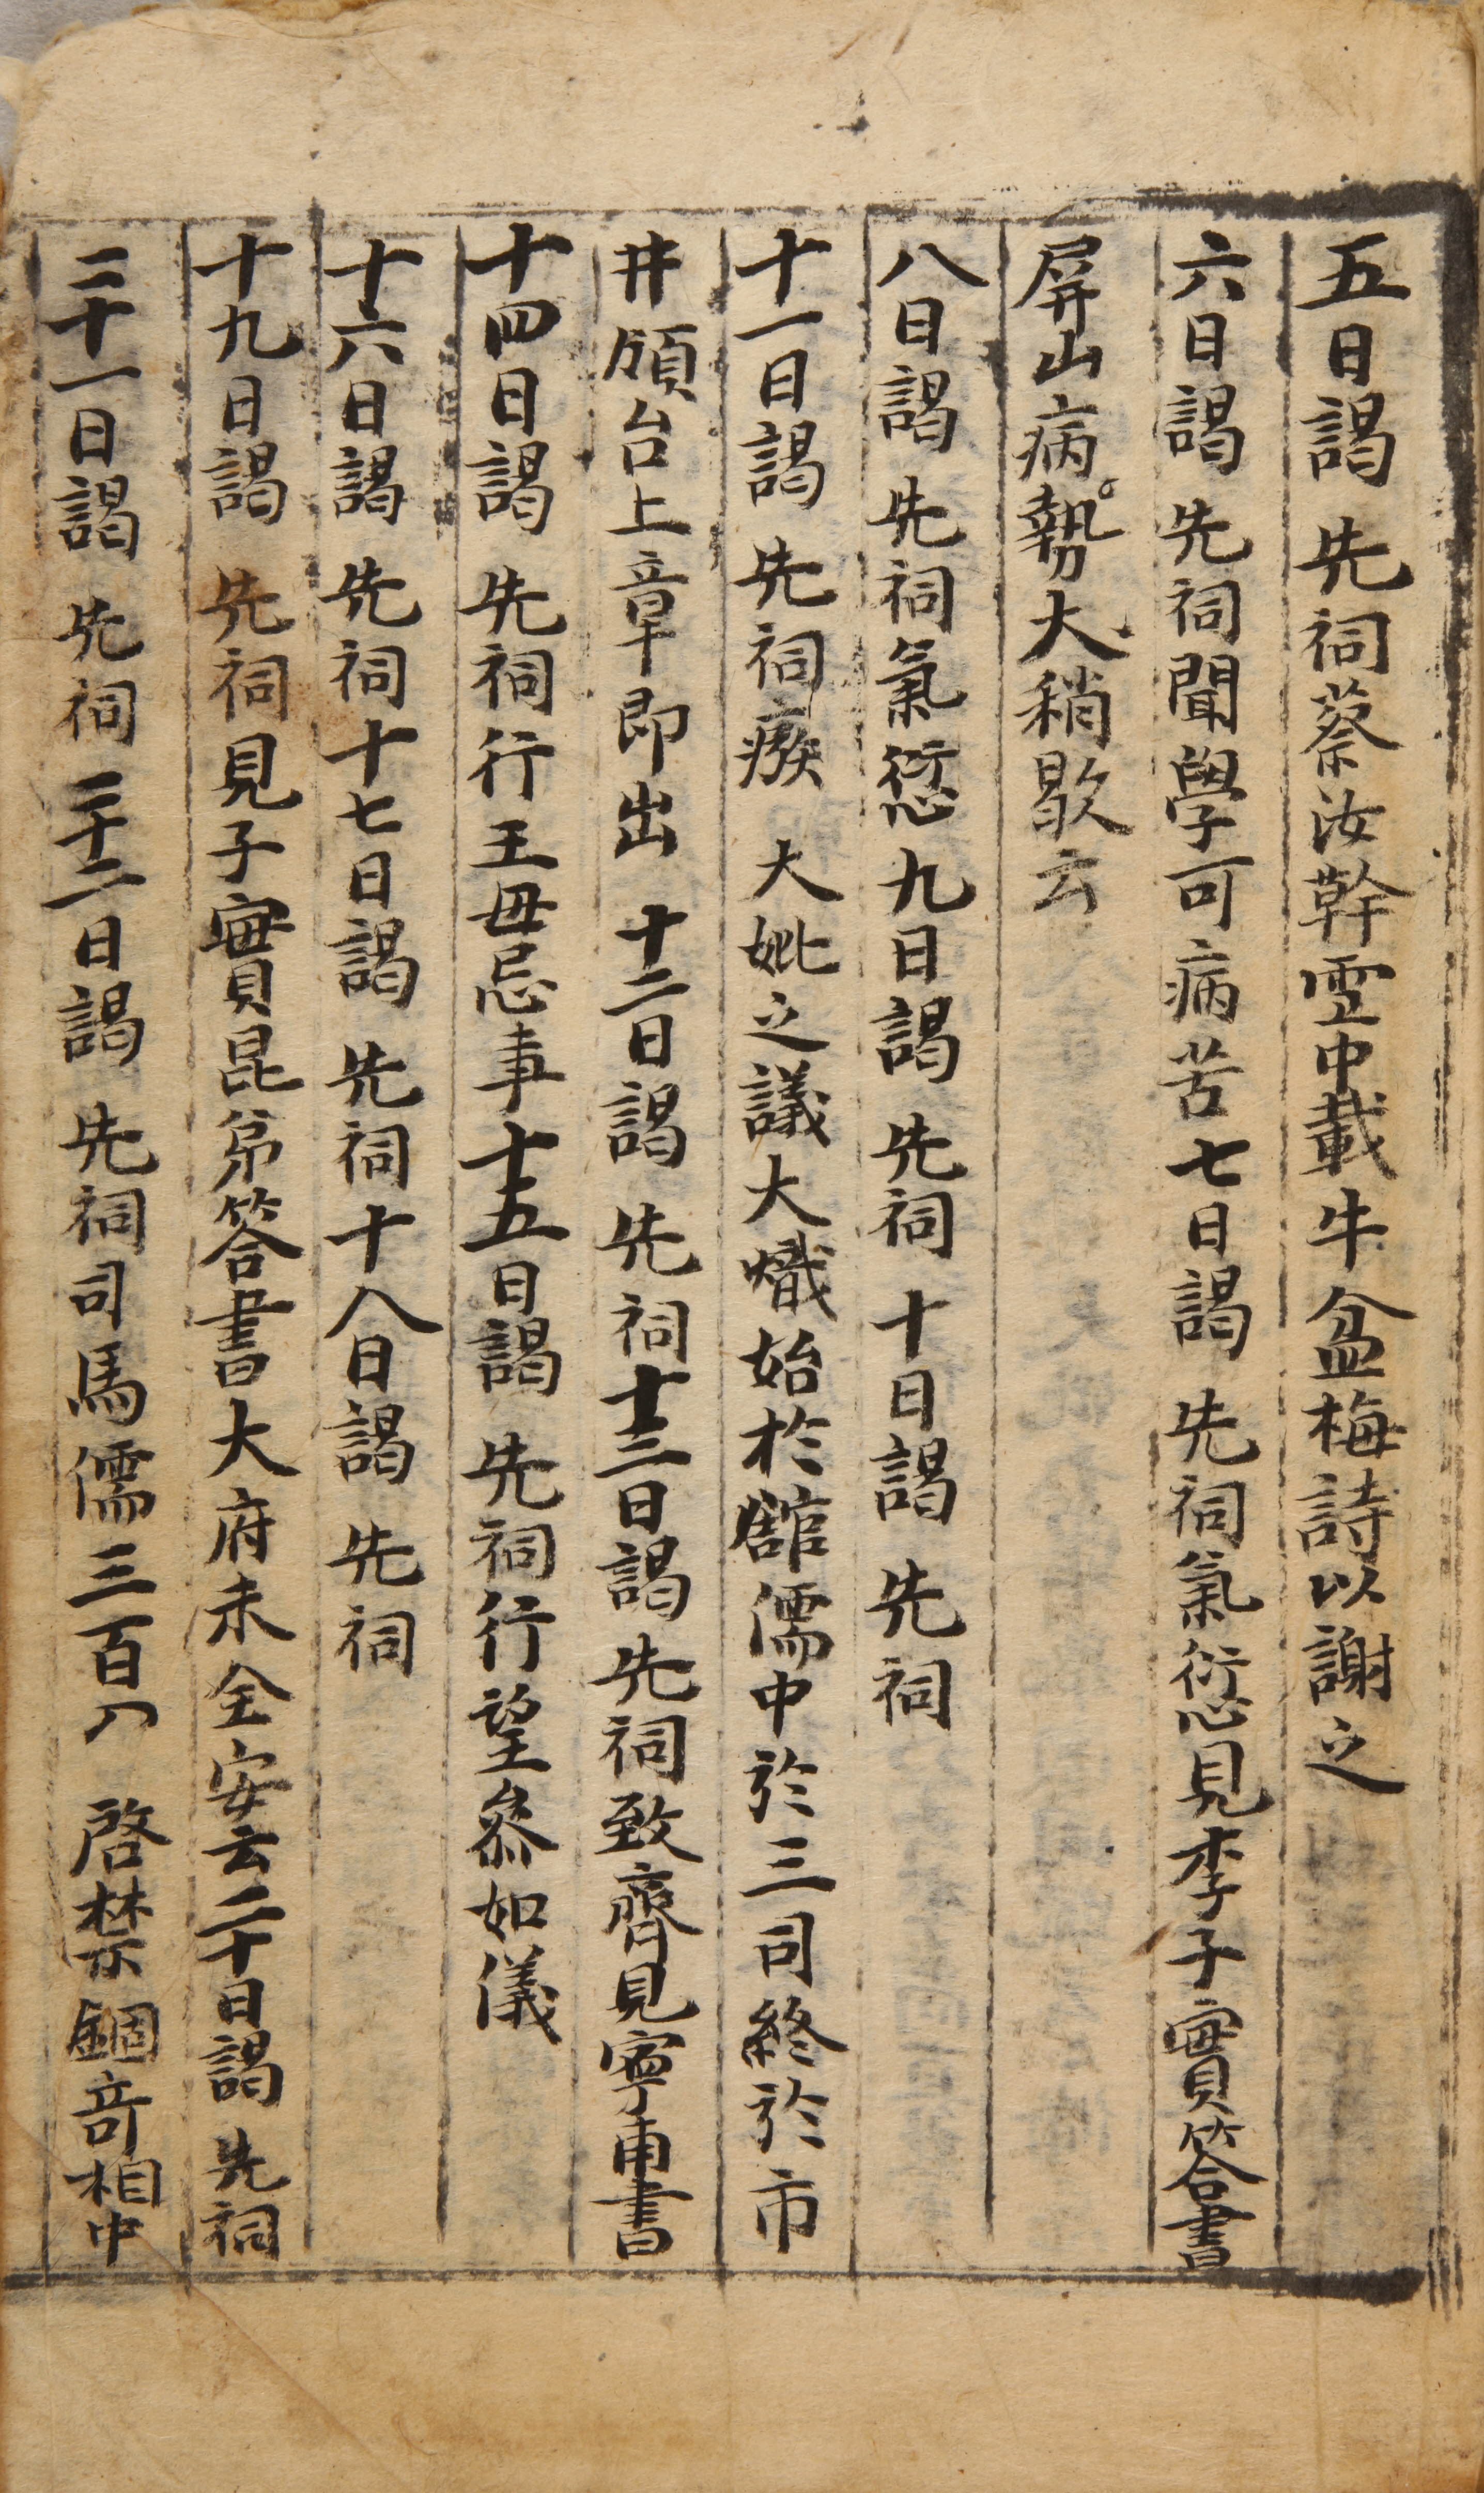 五日謁 先祠蔡汝幹雪中載牛盆梅詩以謝之
六日謁 先祠聞學可病苦七日謁 先祠氣愆見李子實答書
屛山病勢大稍歇云
八日謁 先祠氣愆九日謁 先祠 十日謁 先祠
十一日謁 先祠癈 大妣之議大熾始於舘儒中於三司終於市
井頎台上章即出 十二日謁 先祠十三日謁 先祠致齊見寧甫書
十四日謁 先祠行王毋忌事十五日謁 先祠行望叅如儀
十六日謁 先祠十七日謁 先祠十八日謁 先祠
十九日謁 先祠見子實昆弟答書大府未全安云二十日謁 先祠
二十一日謁 先祠二十二日謁 先祠司馬儒三百 啓禁錮竒相中